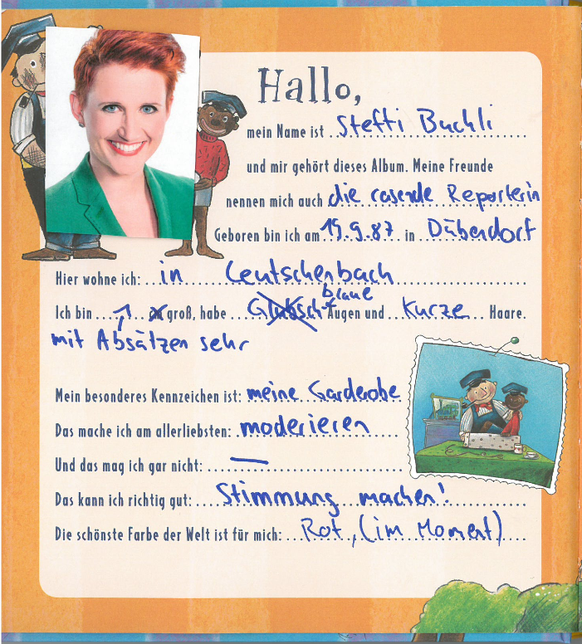 Hallo,
mein Name ist Steffi Buchli
und mir gehört dieses Album. Meine Freunde
nennen mich auch die rasende Reporterin
Geboren bin ich am 19.9.87 in Dübendorf
Hier wohne ich: in Leutschenbach
braune
Ich bin 1, zu groß, habe Glubsch Augen und kurze Haare.
mit Absätzen sehr
Mein besonderes Kennzeichen ist: meine Garderobe
Das mache ich am allerliebsten: moderieren
Und das mag ich gar nicht: —
Das kann ich richtig gut: Stimmung machen!
Die schönste Farbe der Welt ist für mich: Rot, (im Moment)